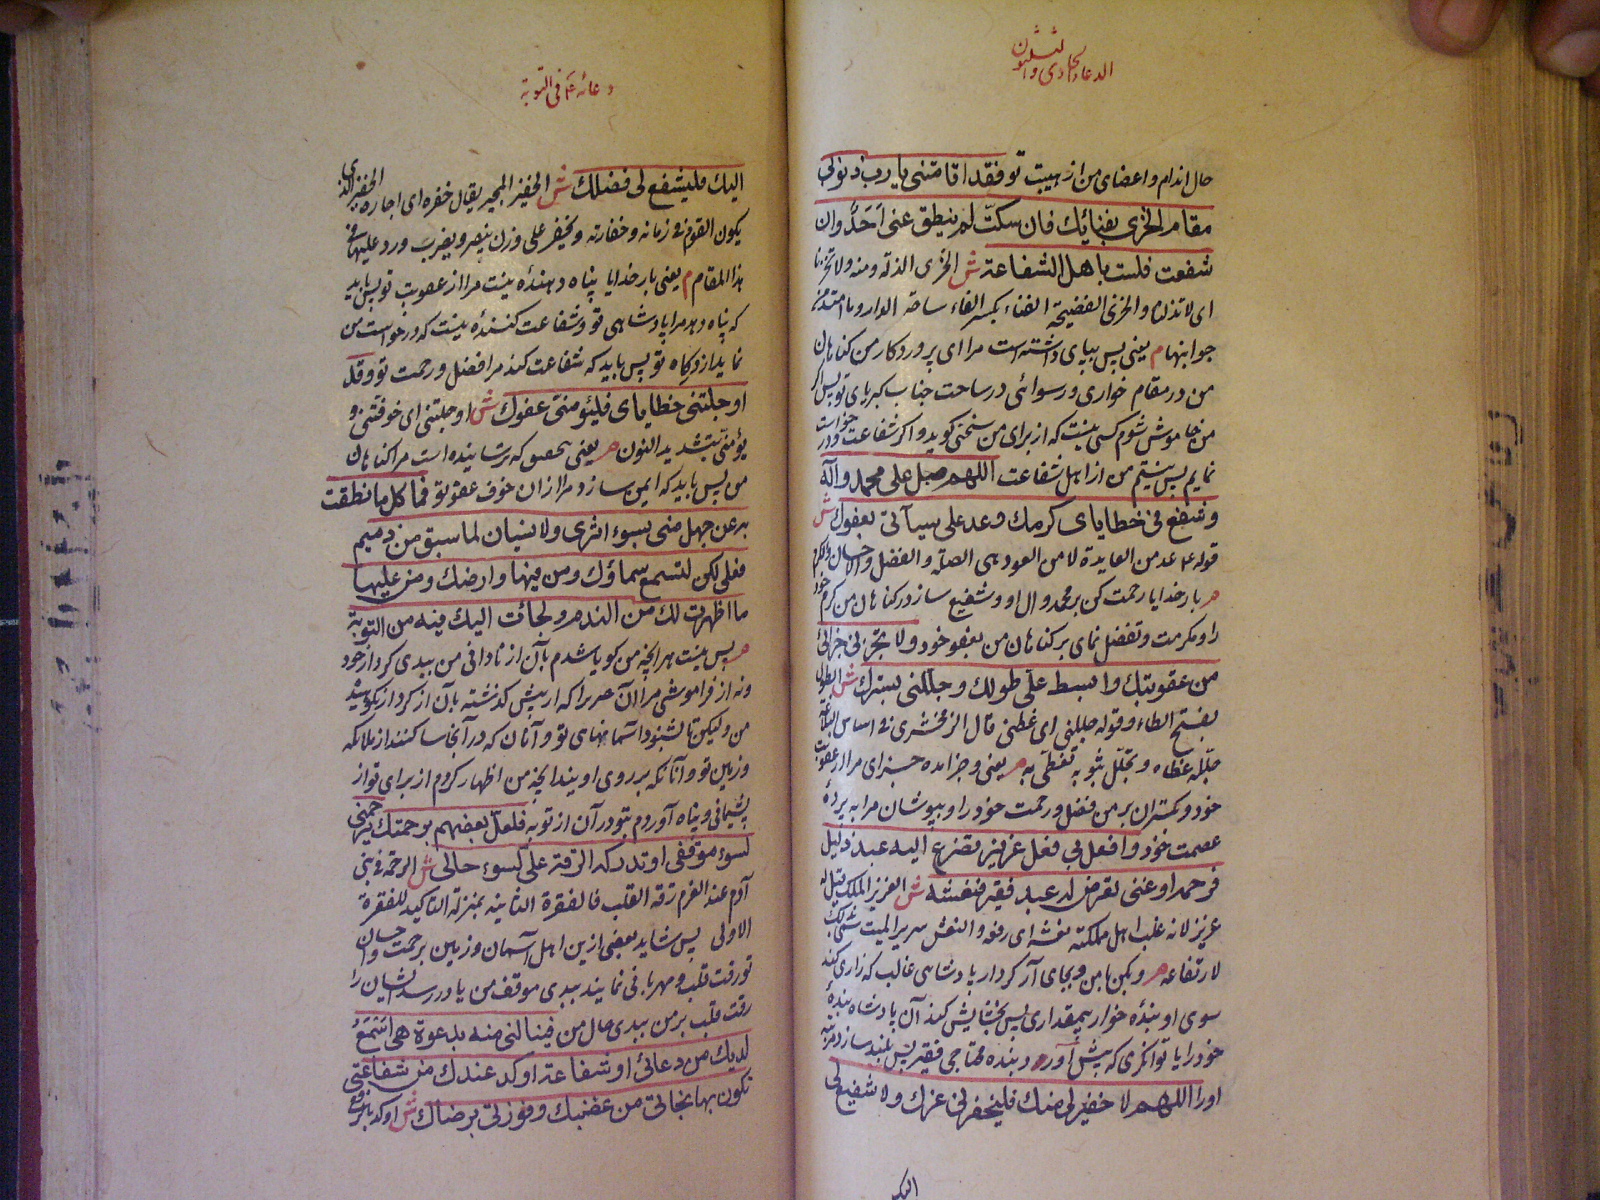 الدعاء الحادي والثلثون
حال اندام و اعضای من از هیبت تو فقد اقامتنی یا رب ذنوبی
مقام الخزی بفنائك فان سكتّ لم ینطق عنی احد وان
شفعت فلست باهل الشفاعة ش الخزی الذلة ومنه ولا تخزنا
ای لا تذلنا والخزی الفضیحة الفناء بكسر الفاء ساحة الدار وما امتد من
جوانبها م یعنی پس بپای داشته است مرا ای پروردکار من کناهان
من در مقام خواری و رسوائی در ساحت جناب کبریای تو پس اکر
من خاموش شوم کسی نیست که از برای من سخنی کوید و اکر شفاعت
نمایم پس نیستم من از اهل شفاعت اللهم صل علی محمد وآله
وشفع فی خطایای كرمك وعد علی سیآتی بعفوك ش
قوله عد من العایدة لا من العود هی الصلة والفضل والاحسان
م بار خدایا رحمت کن بر محمد و ال او و شفیع ساز در کناهان من کرم خود
را و مکرمت و تفضل نمای بر کناهان من بعفو خود ولا تجزنی جزائی
من عقوبتك وابسط علی طولك وجللنی بسترك ش الطول
بفتح الطاء وقوله جللنی ای غطنی قال الزمخشری فی اساس البلاغة
جلله غطاه وتجلل بثوبه تغطی به م یعنی و جزا مده جزای مرا از عقوبت
خود و بکستران بر من فضل و رحمت خود را و بپوشان مرا به پردهٔ
عصمت خود وافعل بی فعل عزیز تضرع الیه عبد ذلیل
فرحمه او غنی تعرض له عبد فقیر فنعشه ش العزیز الملك
عزیز لانه غلب اهل مملكته نعشه ای رفعه والنعش سریر المیت
لارتفاعه م و بکن با من و بجای آر کردار پادشاهی غالب که زاری کند
سوی او بندهٔ خوار بیمقداری پس بخشایش کند آن پادشاه بندهٔ
خود را یا توانکری که پیش آورد بنده محتاجی فقیر پس بلند سازد مرتبه
او را اللهم لا خفیر لی منك فلیخفرنی عزك ولا شفیع لی
الیك
دعائه ع فی التوبة
الیك فلیشفع لی فضلك ش الخفیر المجیر یقال خفره ای اجاره الخفیر الذی
یكون القوم فی زمانه وخفارته ویخفر علی وزن ینصر ویضرب ورد علیهما فی
هذا المقام م یعنی بار خدایا پناه دهندهٔ نیست مرا از عقوبت تو پس باید
که پناه دهد مرا پادشاهی تو و شفاعت کنندهٔ نیست که درخواست من
نماید از درکاه تو پس باید که شفاعت کند مرا فضل و رحمت تو وقد
اوجلتنی خطایای فلیؤمنی عفوك ش اوجلتنی ای خوفتنی و
یؤمنی بتشدید النون م یعنی بتحقیق که ترسانیده است مرا کناهان
من پس باید که ایمن سازد مرا از ان خوف عفو تو فما كل ما نطقت
به عن جهل منی بسوء اثری ولا نسیان لما سبق من ذمیم
فعلی لكن لتسمع سماؤك ومن فیها وارضك ومن علیها
ما اظهرت لك من الندم ولجأت الیك فیه من التوبة
م پس نیست هر انچه من کویا شدم بآن از نادانی من ببدی کردار خود
ونه از فراموشی مر آن چیز را که از پیش کذشته بآن از کردار نکوهیده
من ولیکن تا بشنود آسمانهای تو و آنان که در آنجا ساکنند از ملائکه
و زمین تو و آنانکه بر روی اویند انچه من اظهار کردم از برای تو از
پشیمانی و پناه آوردم بتو در آن از توبه فلعل بعضهم برحمتك یرحمنی
لسوء موقفی او تدركه الرقة علی لسوء حالی ش الرحمة فی بنی
آدم عند العرب رقة القلب فالفقرة الثانیة بمنزلة التاكید للفقرة
الاولی پس شاید بعضی ازین اهل آسمان و زمین برحمت و احسان
تو رقت قلب و مهربانی نمایند ببدی موقف من یا در رسد ایشان را
رقت قلب بر من ببدی حال من فینالنی منه بدعوة هی اسمع
لدیك من دعائی او شفاعة اوكد عندك من شفاعتی
تكون بها نجاتی من غضبك وفوزتی برضاك ش اوكد